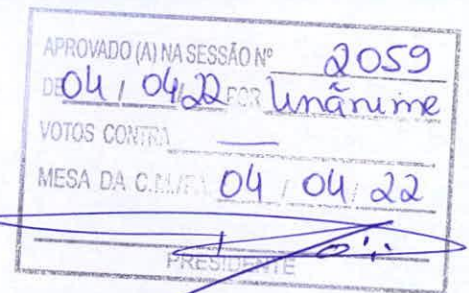 APROVADO (A) NA SESSÃO Nº 2059
DE 04 / 04/22 POR Unânime
VOTOS CONTRA —
MESA DA C.M. 04 / 04/ 22
PRESIDENTE